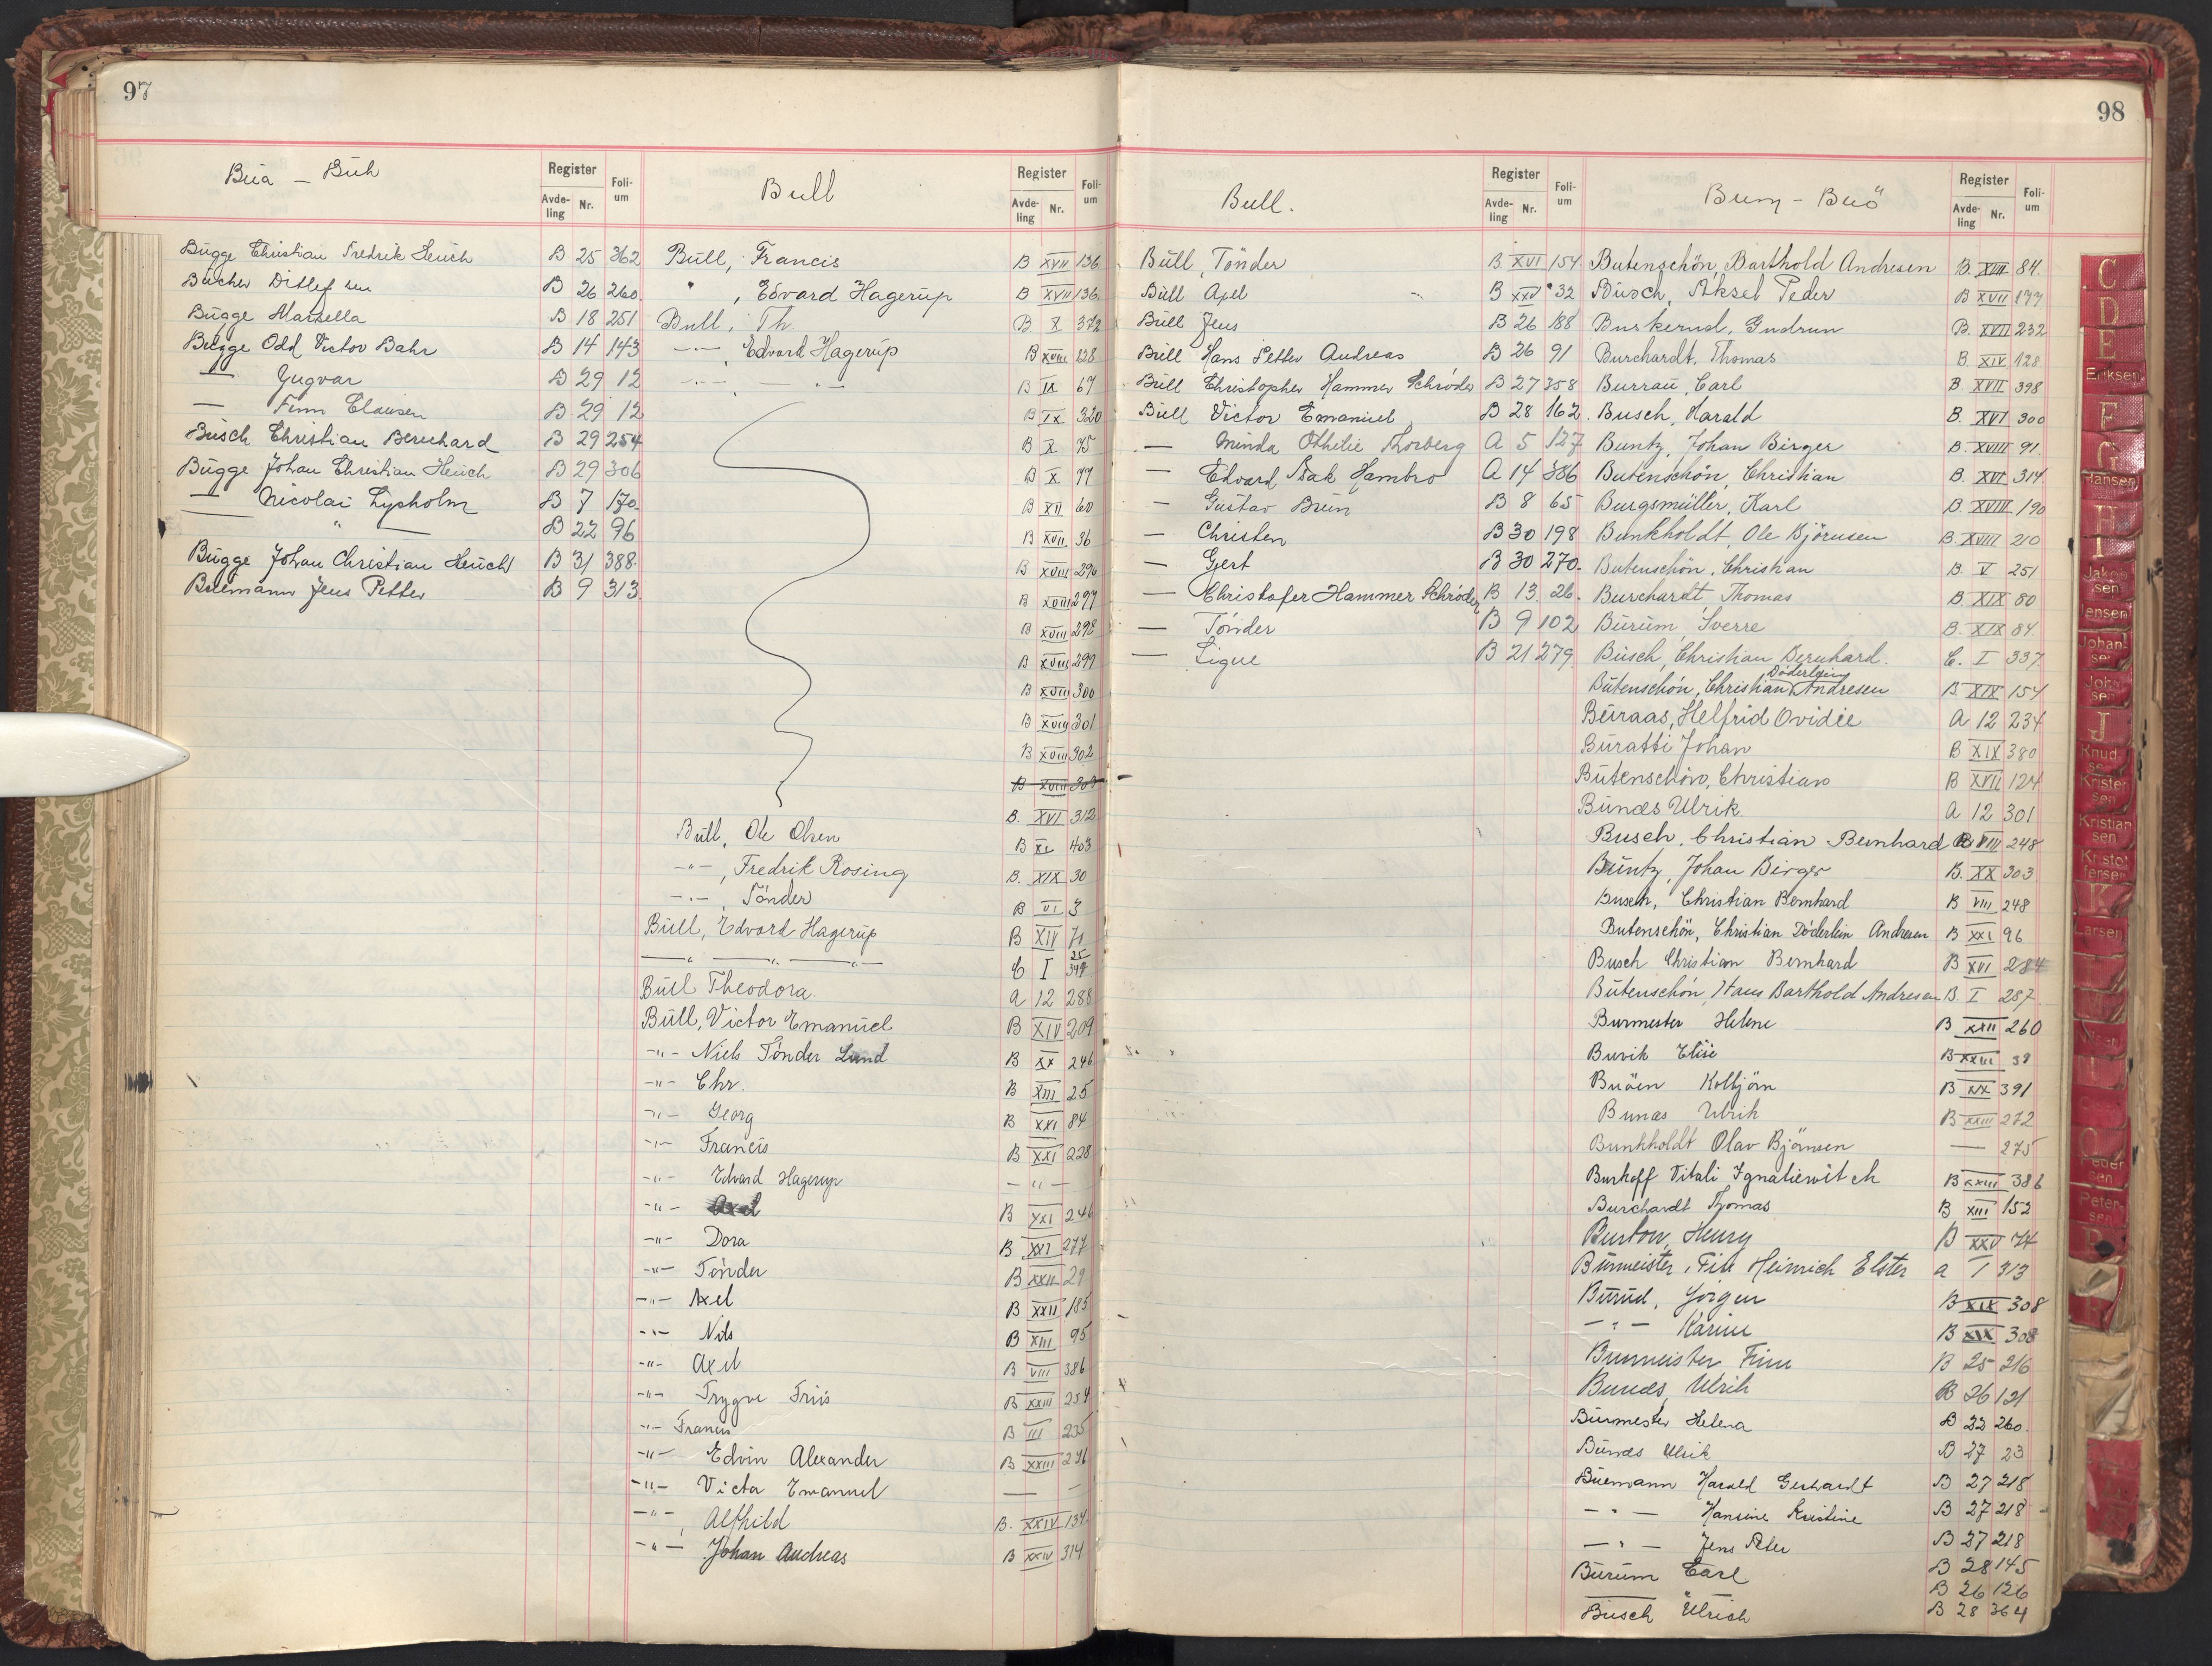 97
Bua – Buh
Register
Avde-ling Nr. Foli-um
Bugge Christian Fredrik Heuch B 25 362
Bucher Ditlef sen B 26 260
Bugge Marsella B 18 251
Bugge Odd Victor Bahr B 14 143
— Yngvar B 29 12
— Finn Clausen B 29 12
Busch Christian Bernhard B 29 254
Bugge Johan Christian Heuch B 29 306
— Nicolai Lysholm B 7 170
— " — B 22 96
Bugge Johan Christian Heuch B 31 388
Buemann Jens Petter B 9 313
Bull
Register
Avde-ling Nr. Foli-um
Bull, Francis B XVII 136
" , Edvard Hagerup B XVII 136
Bull, Th. B X 372
—"— , Edvard Hagerup B XVIII 128
—"— — "— B IX 67
B IX 320
B X 75
B X 77
B XII 60
B XVII 36
B XVIII 296
B XVIII 297
B XVIII 298
B XVIII 299
B XVIII 300
B XVIII 301
B XVIII 302
B XVIII 303
B. XVI 312
Bull, Ole Olsen B XI 403
—"— , Fredrik Rosing B. XIX 30
—"— , Tönder B VI 3
Bull, Edvard Hagerup B XIV 71
—"— —"— —"— C I 25 349
Bull Theodora. A 12 288
Bull, Victor Emanuel B XIV 209
—"— Niels Tönder Lund B XX 246
—"— Chr. B XIII 25
—"— Georg B XXI 84
—"— Francis B XXI 228
—"— Edvard Hagerup — " —
—"— Axel B XXI 246
—"— Dora B XXI 277
—"— Tönder B XXII 29
—"— Axel B XXII 185
—"— Nils B XIII 95
—"— Axel B VIII 386
—"— Trygve Friis B XXIII 254
—"— Francis B III 235
—"— Edvin Alexander B XXIII 296
—"— Victor Emanuel — —
—"— , Alfhild B. XXIV 134
—"— Johan Andreas B XXIV 314
98
Bull.
Register
Avde-ling Nr. Foli-um
Bull, Tönder B. XVI 154
Bull Axel B XXV 32
Bull Jens B 26 188
Bull Hans Petter Andreas B 26 91
Bull Christopher Hammer Schröder B 27 358
Bull Victor Emanuel B 28 162
— Minda Othelie Thorberg A 5 127
— Edvard Isak Hambro A 14 386
— Gustav Brun B 8 65
— Christen B 30 198
— Gert B 30 270
— Christofer Hammer Schröder B 13 26
— Tönder B 9 102
— Signe B 21 279
Bum – Buö
Register
Avde-ling Nr. Foli-um
Butenschön, Barthold Andresen B. XVII 84
Busch, Aksel Peder B XVII 177
Buskerud, Gudrun B. XVII 232
Burchardt, Thomas B XIV 128
Burrau, Carl B. XVII 398
Busch, Harald B. XVI 300
Buntz, Johan Birger B. XVIII 91
Butenschön, Christian B. XVI 314
Burgsmüller, Karl B. XVIII 190
Bunkholdt, Ole Björnsen B. XVIII 210
Butenschön, Christian B. V 251
Burchardt Thomas B. XIX 80
Burum, Sverre B. XIX 84
Busch, Christian Bernhard. C. I 337
Döderlein
Butenschön, Christian Andresen B XIX 154
Buraas, Helfrid Ovidie A 12 234
Buratti Johan B XIX 380
Butenschön, Christian B XVII 124
Bunæs Ulrik A 12 301
Busch, Christian Bernhard B VIII 248
Buntz, Johan Birger B. XX 303
Busch, Christian Bernhard B VIII 248
Butenschön, Christian Döderlein Andresen B XXI 96
Busch Christian Bernhard B XVI 284
Butenschön, Hans Barthold Andresen B. I 287
Burmester Helene B XXII 260
Buvik Elise B XXIII 38
Buöen Kolbjörn B XX 391
Bunæs Ulrik B XXIII 272
Bunkholdt Olav Björnsen — 275
Burhoff Vitali Ignatiewitch B XXIII 386
Burchardt Thomas B XIII 152
Burton, Henry B XXV 74
Burmeister, Finn Heinrich Elster A I 313
Burud, Jörgen B XIX 308
—"— Karine B XIX 308
Burmeister Finn B 25 216
Bunæs, Ulrik B 26 121
Burmester Helena B 22 260
Bunæs Ulrik B 27 23
Buemann Harald Gerhardt B 27 218
—"— Hansine Kristine B 27 218
—"— Jens Peter B 27 218
Burum Carl B 28 145
— " — B 26 126
Busch Ulrich B 28 364
C
D
E
Eriksen
F
G
Hansen
H
I
Jakobsen
Jensen
Johansen
Johnsen
J
Knudsen
Kristensen
Kristiansen
Kristoffersen
K
Larsen
Pedersen
Petersen